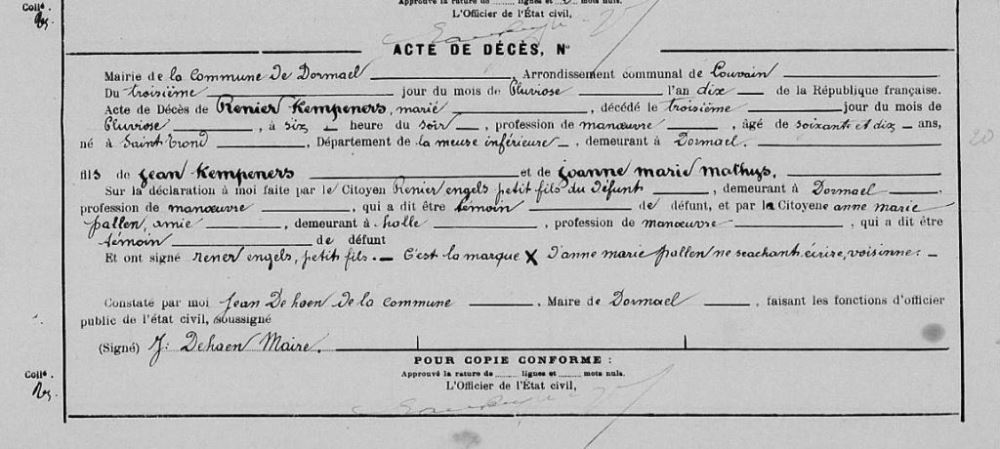 Collé.
Approuvé la rature de ...... lignes et ...... mots nuls.
L'Officier de l'État civil,
ACTE DE DÉCÈS, N°
Mairie de la Commune de Dormael, Arrondissement communal de Louvain
Du troisième jour du mois de Pluviose l'an dix de la République française.
Acte de Décès de Renier Kempeners, marié, décédé le troisième jour du mois de
Pluviose, à six heure du soir, profession de manœuvre, âgé de soixante et dix ans,
né à Saint trond, Département de la meuse inférieure, demeurant à Dormael.
20
fils de Jean Kempeners et de Joanne marie mathys,
Sur la déclaration à moi faite par le Citoyen Renier engels petit fils du défunt, demeurant à Dormael,
profession de manœuvre, qui a dit être témoin de défunt, et par la Citoyene anne marie
pallen, amie, demeurant à halle, profession de manœuvre, qui a dit être
témoin de défunt
Et ont signé rener engels, petit fils. — C'est la marque X d'anne marie pallen ne seachant écrire, voisinne: —
Constaté par moi Jean De haen de la commune, Maire de Dormael, faisant les fonctions d'officier
public de l'état civil, soussigné
(Signé) J: Dehaen Maire.
POUR COPIE CONFORME :
Approuvé la rature de ...... lignes et ...... mots nuls.
Collé.
L'Officier de l'État civil,